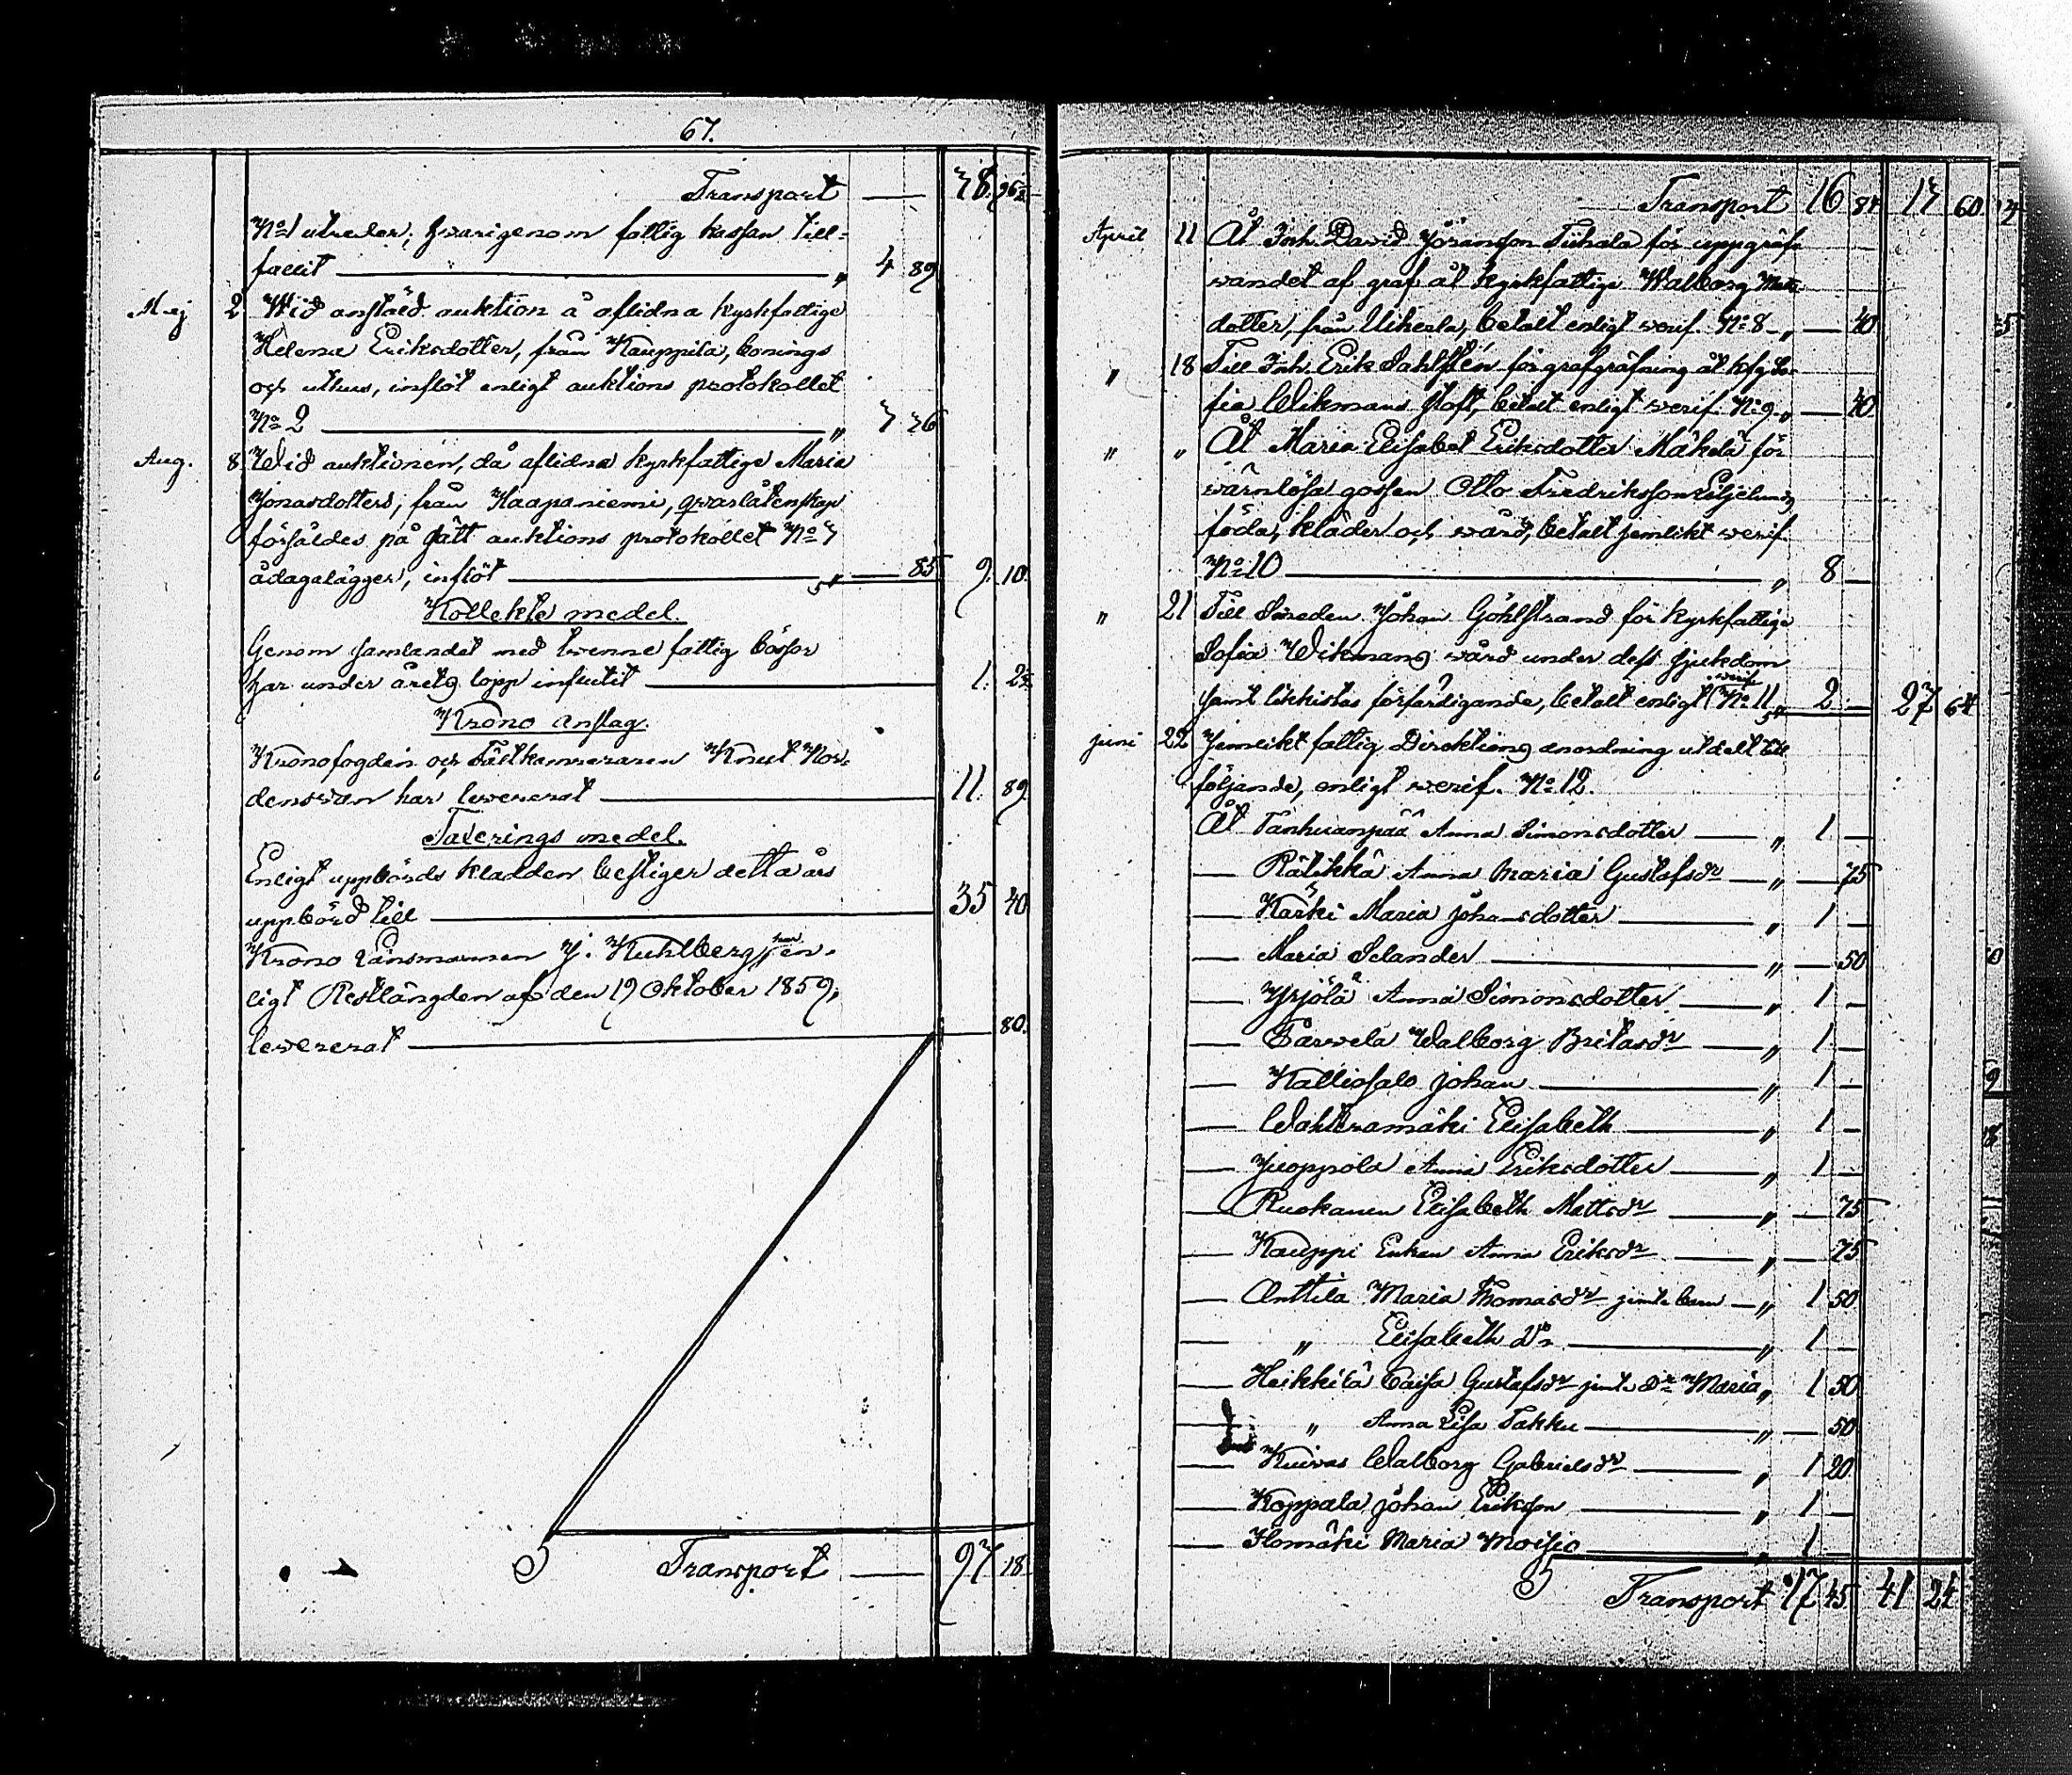 67.
Transport — 38. 96½
No 1 utreder, hvarigenom fattig kassan till-
fallit — " 4 89
Maj 2 Wid anstäld auktion å aflidna kyrkfattige
Helena Eriksdotter, från Kauppila, bonings
och uthus, inflöt enligt auktions protokollet
No 2 — " 3 36
Aug. 8 Wid auktionen, då aflidna kyrkfattige Maria
Jonasdotters, från Haapaniemi, qvarlåtenskap
försåldes på sätt auktions protokollet No 3
ådagalägger, inflöt — " — 85 9. 10.
Kollekte medel.
Genom samlandet med tvenne fattig bössor
har under årets lopp influtit — 1. 2½
Krono anslag.
Kronofogden och Fältkamreraren Knut Nor-
densvan har levererat — 11. 89
Taxerings medel.
Enligt uppbörds kladden bestiger detta års
uppbörd till — 35 40
Krono Länsmannen J. Kuhlberg har en-
ligt Restlängden af den 19 Oktober 1859,
levererat — 80.
S Transport — 97 18.
Transport 16 84 13 60
April 11 Åt Inh. David Jöransson Tiihala för uppgräf-
vandet af graf åt kyrkfattige Walborg Matts
dotter, från Uihela, betalt enligt verif. No 8 " — 40
" 18 Till Inh. Erik Sahlstén för grafgräfning åt kfg So-
fia Wikmans stoft, betalt enligt verif. No 9 " — 40
" " Åt Maria Elisabet Eriksdotter Mäkelä för
värnlösa gossen Otto Fredriksson Liljelunds
föda, kläder och vård, betalt jemlikt verif.
No 10 — " 8 —
" 21 Till Smeden Johan Göhlstrand för kyrkfattige
Sofia Wikmans vård under dess sjukdom
samt likkistas förfärdigande, betalt enligt verif. No 11 " 2 — 27 64
Juni 22 Jemlikt fattig Direktions anordning utdelt till
följande, enligt verif. No 12.
Åt Tanhuanpää Anna Simonsdotter — " 1 —
— Rätikkä Anna Maria Gustafsdr — " — 75
— Kärki Maria Johansdotter — " 1 —
— Maria Selander — " — 50
— Yrjölä Anna Simonsdotter — " 1 —
— Sarvela Walborg Britasdr — " 1 —
— Kalliosalo Johan — " 1 —
— Wahteramäki Elisabeth — " 1 —
— Juoppola Anna Eriksdotter — " 1 —
— Ruokanen Elisabeth Mattsdr — " — 75
— Kauppi Enkan Anna Eriksdr — " — 75
— Anttila Maria Thomasdr jemte barn — " 1 50
— " Elisabeth Dr — " 1 —
— Heikkilä Caisa Gustafsdr jemte dr Maria " 1 50
— " Anna Lisa Takku — " — 50
— Kuivas Walborg Gabrielsdr — " 1 20
— Koppala Johan Eriksson — " 1 —
— Ilomäki Maria Moisio — " 1 —
S Transport 17 45 41 24